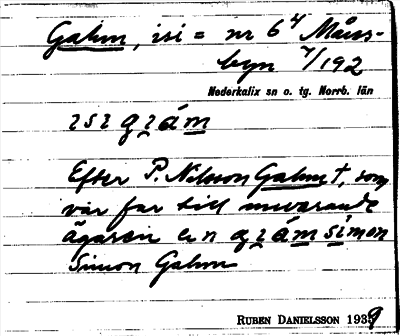 Gahm, isi = nr 6⁴ Måns-
byn 7/192
Nederkalix sn o. tg. Norrb. län
Efter P. Nilsson Gahm †, som
var far till nuvarande
ägaren
Simon Gahm
RUBEN DANIELSSON 1939